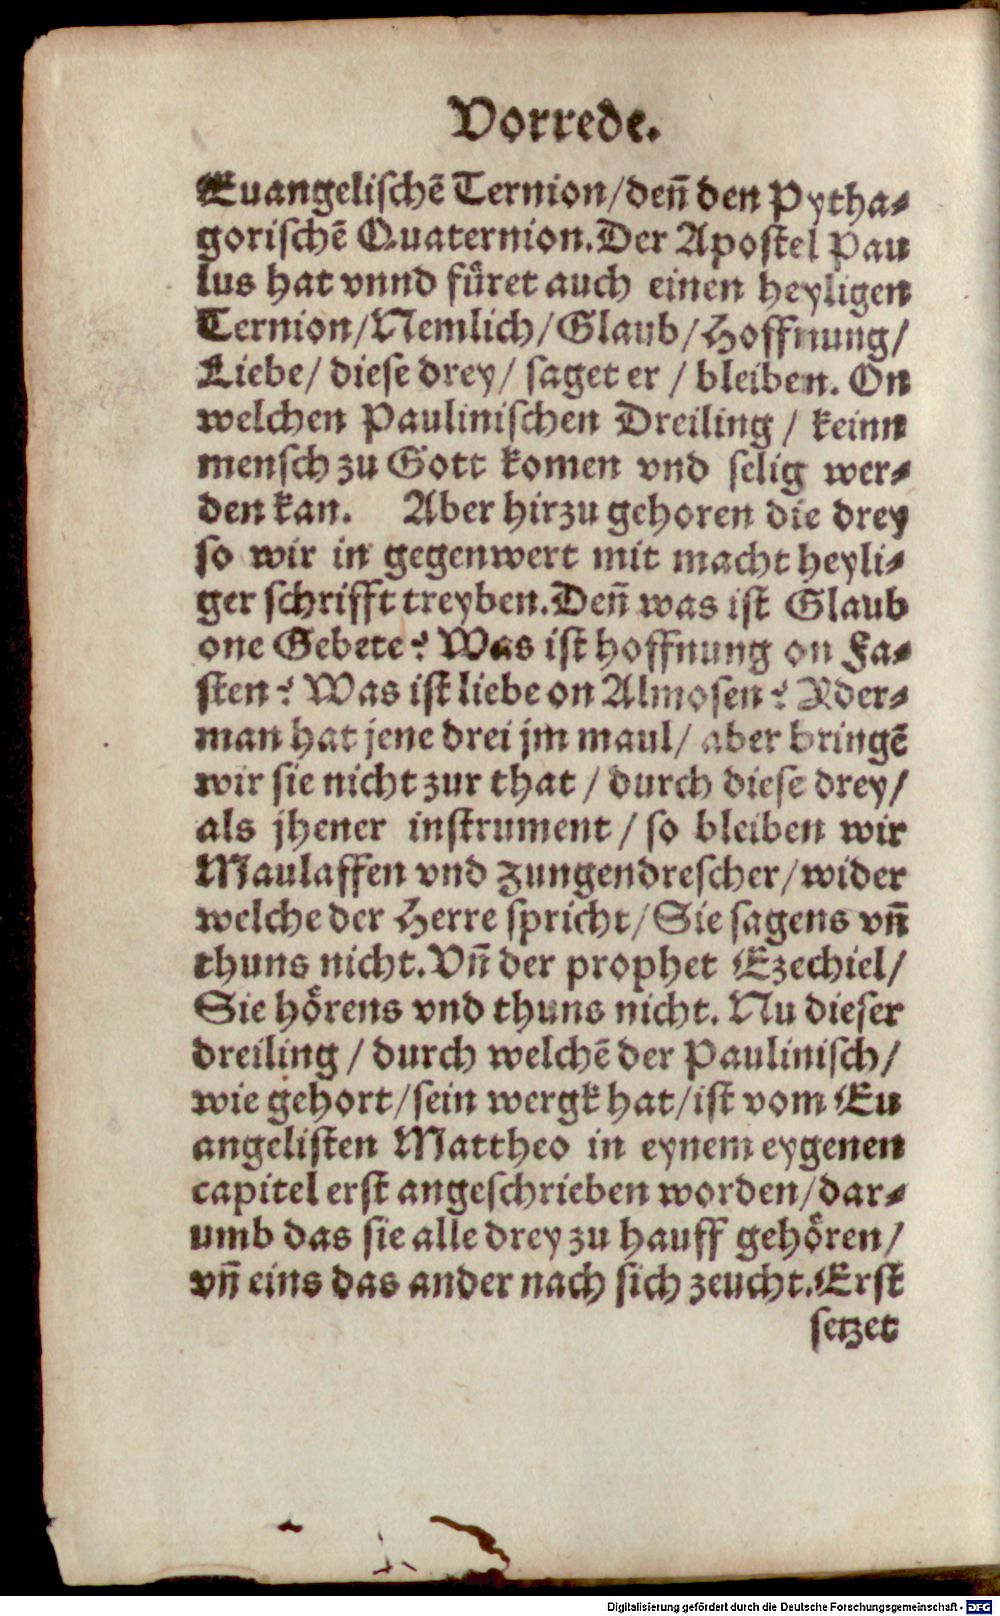 Vorrede.
Euangelischē Ternion/deñ den Pytha-
gorischē Quaternion. Der Apostel Pau
lus hat vnnd fuͤret auch einen heyligen
Ternion/Nemlich/Glaub/Hoffnung/
Liebe/ diese drey/ saget er / bleiben. On
welchen Paulinischen Dreiling / keinn
mensch zu Gott komen vnd selig wer-
den kan. Aber hirzu gehoren die drey
so wir in gegenwert mit macht heyli-
ger schrifft treyben. Deñ was ist Glaub
one Gebete? Was ist hoffnung on Fa-
sten? Was ist liebe on Almosen? Yder-
man hat jene drei jm maul/ aber bringē
wir sie nicht zur that / durch diese drey/
als jhener instrument / so bleiben wir
Maulaffen vnd Zungendrescher/wider
welche der Herre spricht/Sie sagens vñ
thuns nicht. Vñ der prophet Ezechiel/
Sie hoͤrens vnd thuns nicht. Nu dieser
dreiling / durch welchē der Paulinisch/
wie gehort/sein wergk hat/ist vom Eu
angelisten Mattheo in eynem eygenen
capitel erst angeschrieben worden/dar-
umb das sie alle drey zu hauff gehoͤren/
vñ eins das ander nach sich zeucht. Erst
setzet
Digitalisierung gefördert durch die Deutsche Forschungsgemeinschaft - DFG